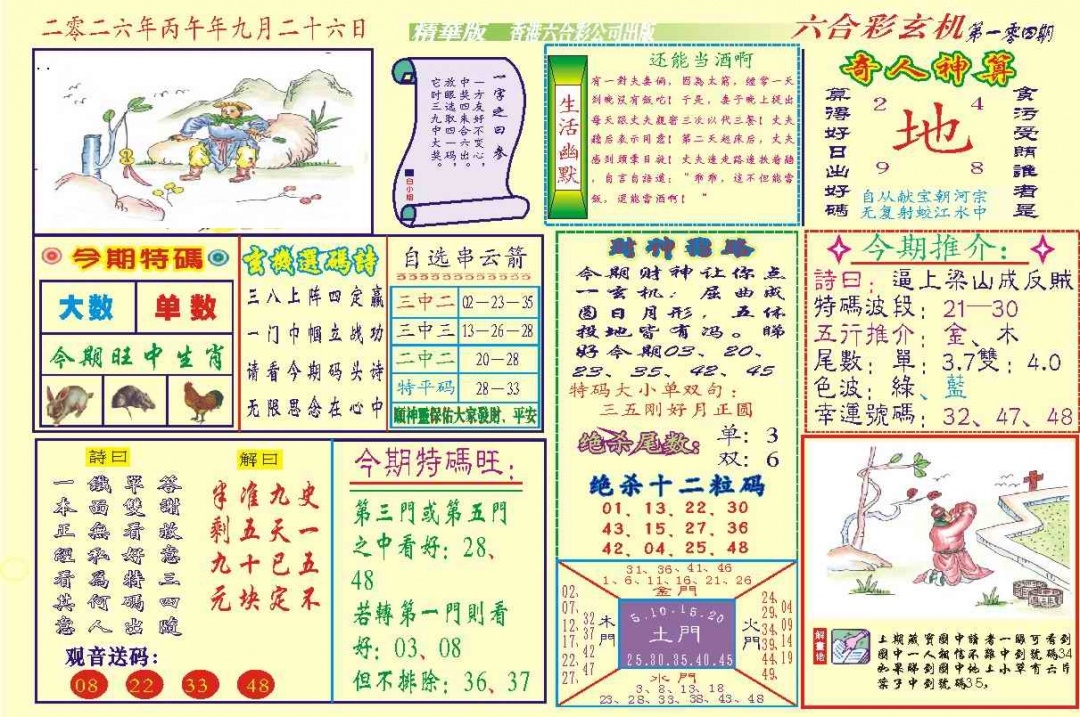 二零二六年丙午年九月二十六日
精華版 香港六合彩公司出版
六合彩玄机 第一零四期
一字之曰参
中一方友好不变心，
一奖四来合六出，
放眼选取四一码，
它时三九中大奖。
白小姐
生活幽默
还能当酒啊
有一對夫妻倆，因為太窮，經常一天
到晚沒有飯吃！于是，妻子晚上提出
每天跟丈夫親密三次以代三餐！丈夫
聽后表示同意！第二天起床后，丈夫
感到頭暈目旋！丈夫邊走路邊扶着牆
，自言自語道："乖乖，這不但能當
飯，還能當酒啊！"
奇人神算
算得好日出好碼
2 4
地
9 8
贪污受賄誰者是
自从献宝朝河宗
无复射蛟江水中
今期特碼
大数 单数
今期旺中生肖
玄機選碼詩
三八上阵四定赢
一门巾帼立战功
请看今期码头诗
无限思念在心中
自选串云箭
三中二 02—23—35
三中三 13—26—28
二中二 20—28
特平码 28—33
順神靈保佑大家發財、平安
财神
今期财神让你点
一玄机：屈曲成
圆日月形，五体
投地皆有冯。睇
好今期03、20、
23、35、42、45
特码大小单双句：
三五刚好月正圆
绝杀尾数： 单：3
双：6
绝杀十二粒码
01、13、22、30
43、15、27、36
42、04、25、48
今期推介：
詩曰：逼上梁山成反賊
特碼波段：21—30
五行推介：金、木
尾數：單：3.7雙：4.0
色波：綠、藍
幸運號碼：32、47、48
詩曰
一本正經看其意
鐵面無私爲何人
單雙看好特碼出
答謝故意三四隨
解曰
半准九史
剩五天一
九十已五
元块定不
观音送码：
08 22 33 48
今期特碼旺：
第三門或第五門
之中看好：28、
48
若轉第一門則看
好：03、08
但不排除：36、37
31、36、41、46
1、6、11、16、21、26
金門
02、07、12、17、22、27、
32、37、42、47
木門
5.10.15.20
土門
25.30.35.40.45
火門
24、29、34、39、44、49、
04、09、14、19
水門
3、8、13、18
23、28、33、38、43、48
解畫佬
上期藏寶圖中讀者一睇可看到
圖中一人相信不難中到號碼34
如果睇到圖中地上小草有六片
葉子中到號碼35，